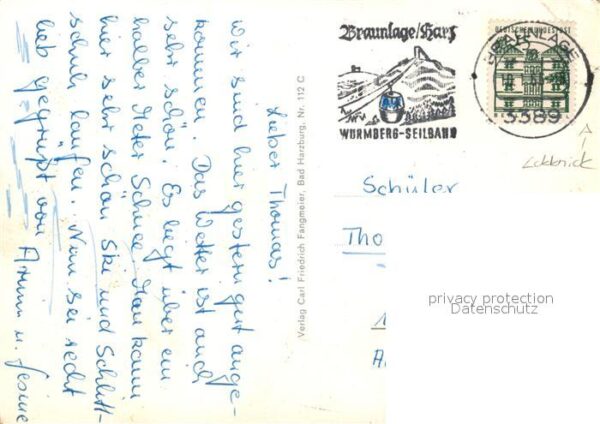 Lieber Thomas!
Wir sind hier gestern gut ange-
kommen. Das Wetter ist auch
sehr schön. Es liegt über ein
halber Meter Schnee. Man kann
hier sehr schön Ski und Schlitt-
schuh laufen. Nun sei recht
lieb gegrüßt von
Armin u. Gesine
Verlag Carl Friedrich Fangmeier, Bad Harzburg, Nr. 112 C
Braunlage/Harz
WURMBERG-SEILBAHN
DEUTSCHE BUNDESPOST
BRAUNLAGE
3389
Schüler
Tho
privacy protection
Datenschutz